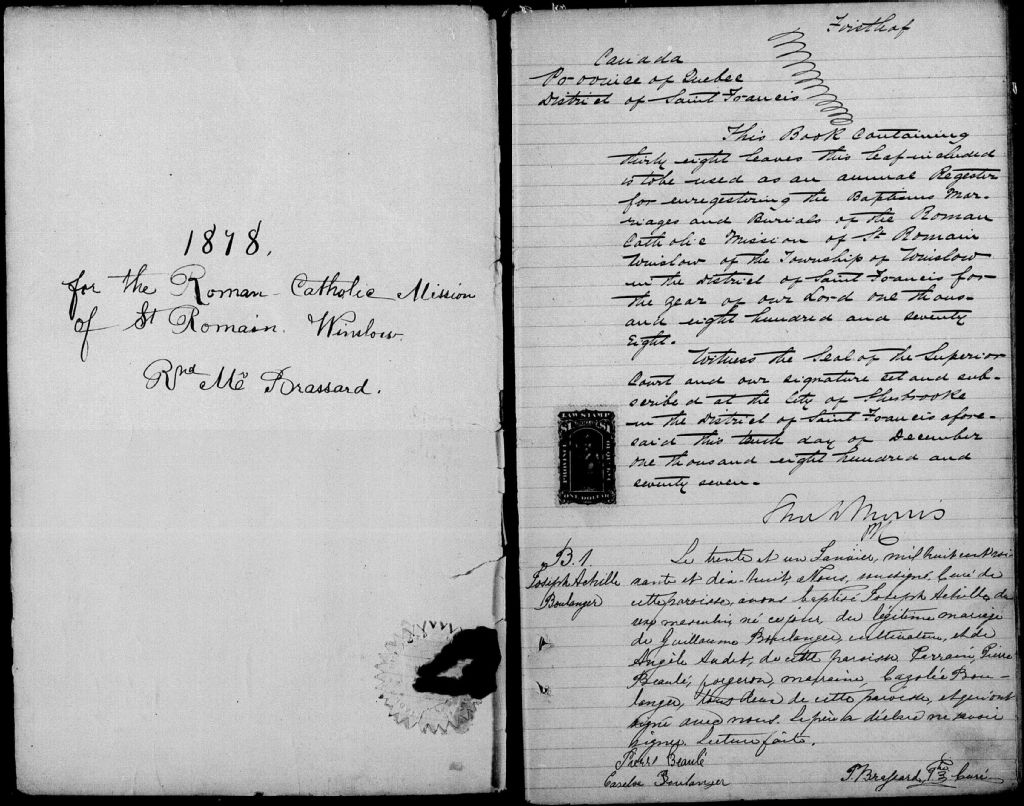 1878.
for the Roman Catholic Mission
of St Romain. Winslow.
Rnd Mr Brassard.
Canada
Province of Quebec
District of Saint Francis
This Book Containing
thirty eight leaves this leaf included
is to be used as an annual Register
for enregistering the Baptisms Mar-
riages and Burials of the Roman
Catholic Mission of St Romain
Winslow of the Township of Winslow
in the district of Saint Francis for
the year of our Lord one thous-
and eight hundred and seventy
Eight.
Witness the Seal of the Superior
Court and our signature set and sub-
scribed at the City of Sherbrooke
in the District of Saint Francis afore-
said this tenth day of December
one thousand eight hundred and
seventy seven.
LAW STAMP
PROVINCE
ONE DOLLAR
Morris
B. 1
Joseph Achille
Boulanger
Le trente et un Janvier, mil huit cent soi-
xante et dix-huit, Nous, soussigné, Curé de
cette paroisse, avons baptisé Joseph Achille, du
sexe masculin, né ce jour, du légitime mariage
de Guillaume Boulanger, cultivateur, et de
Angèle Audet, de cette paroisse. Parrain, Pierre
Beaulé, forgeron, marraine, Bou-
langer, tous deux de cette paroisse, et qui ont
signé avec nous. Le père a déclaré ne savoir
signer. Lecture faite.
Pierre Beaulé
Boulanger
P. Brassard, Ptre Curé